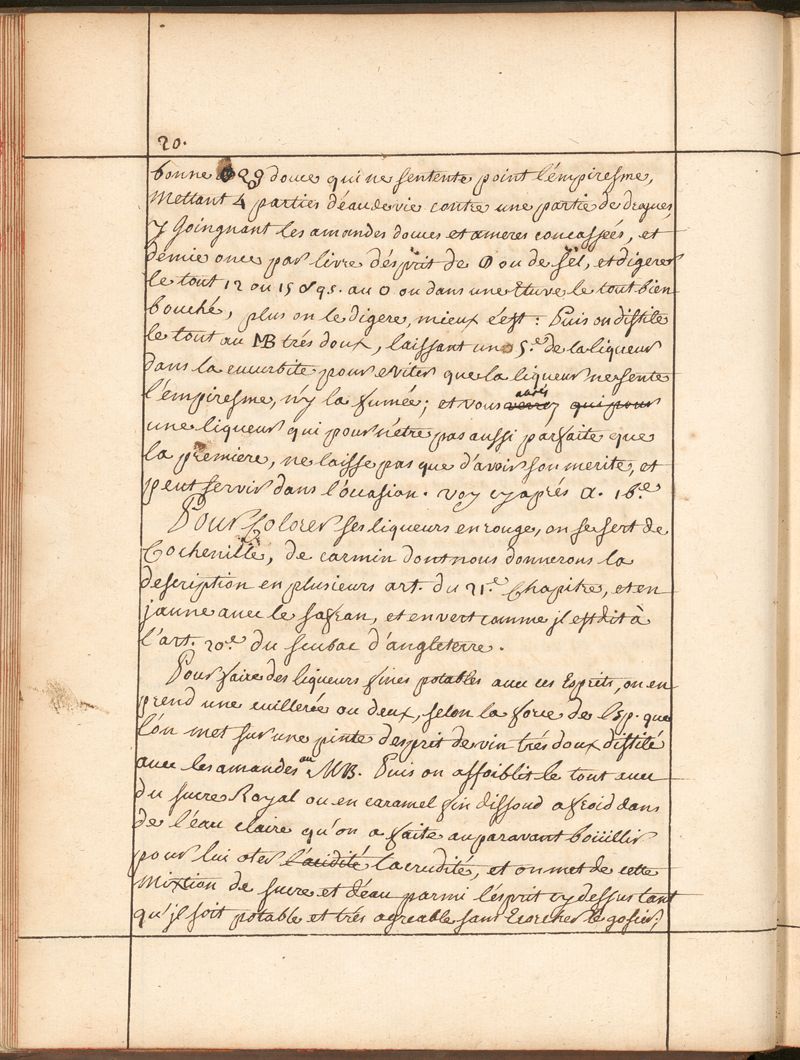 20.
bonne 29 douce qui ne sentente point l'émpiresme,
Mettant 4 parties d'éaudevie contre une partie de dragues,
y Goingnant les amandes douces et ameres concassées, et
démie once par livre d'ésprit de ʘ ou de sël, et digerer
le tout 12 ou 15 au ʘ ou dans une Etuve le tout bien
bouché, plus on le digere, mieux c'est : Puis on distile
le tout au MB trés doux, laissant un 5.e de la liqueur
dans la cucurbite pour eviter que la liqueur ne sente
l'émpiresme, n'y la fumée ; et vous aurés verrez qui pour
une liqueur qui pour n'être pas aussi parfaite que
la premiere, ne laisse pas que d'avoir son merite, et
peut servir dans l'ócasion. voy cy aprés a. 16.e
Pour Colorer ses liqueurs en rouge, on se sert de
Cochenille, de carmin dont nous donnerons la
description en plusieurs art. du 21.e Chapitre, et en
jaune avec le safran, et en vert comme jl est dit à
l'art. 20.e du scubac d'angleterre.
Pour faire des liqueurs fines potables avec ces Esprits, on en
prend une cuillerée ou deux, selon la force de l'Esp. que
l'ón met sur une pinte d'esprit de vin trés doux distilé
avec les amandes au MB. Puis on affoiblit le tout avec
du sucre Royal ou en caramel fin dissoud a froid dans
de l'éau claire qu'on a faite auparavant boüillir
pour lui oter l'acidité la crudité, et on met de cette
Mixtion de sucre et d'éau parmi l'ésprit cy dessus tant
qu'jl soit potable et trés agreable sans Ecorcher le gosier,